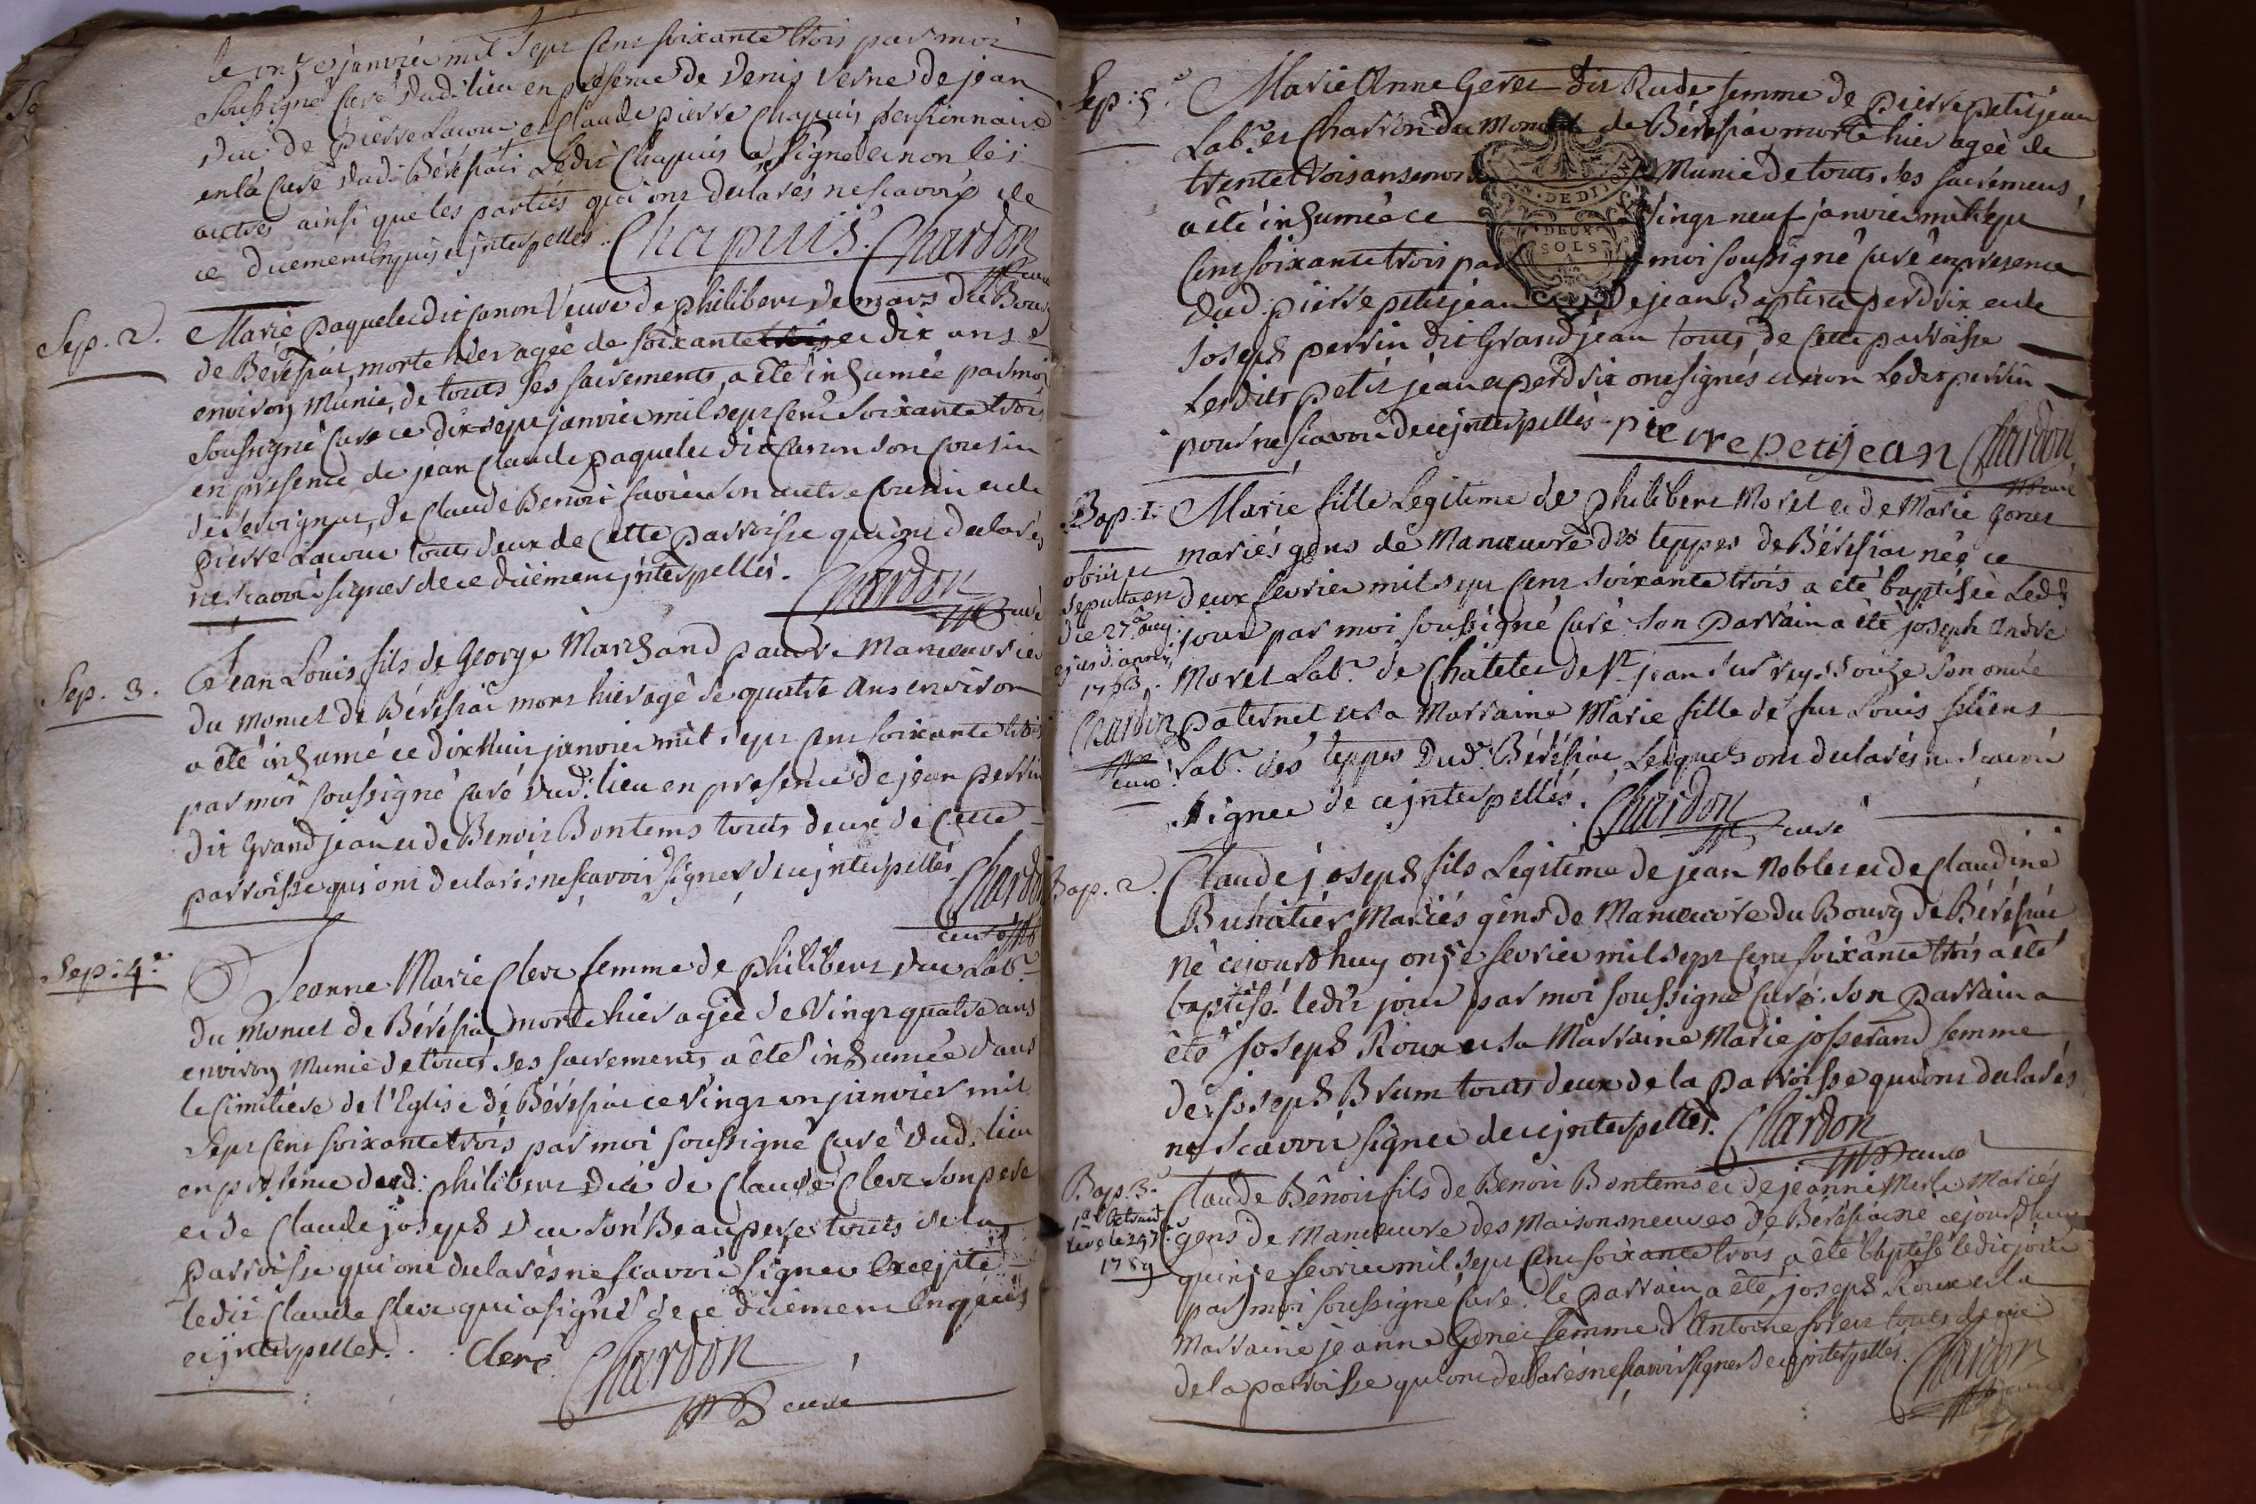 le onze janvier mil sept cent soixante trois par moi
soussigné curé dud: lieu en présence de Denis Verne de jean
Duc de pierre Lacour et Claude pierre Chapuis pensionnaire
en la cure dud: Béréziat Ledit Chapuis a signé et non les
autres ainsi que les parties qui ont declarés ne scavoir de
ce duement enquis et interpellés. Chapuis. Chardon
curé
Sep. 2.
Marie paquelet dit Canon Veuve de philibert de mars du Bourg
de Béréziat, morte hier agée de soixante et dix ans
environ Munie de touts ses sacrements, a êté inhumée par moi
soussigné curé ce dix sept janvier mil sept cent soixante trois
en presence de jean Claude paquelet dit Canon son cousin
de Claude Benoit son autre Cousin et de
pierre Lacour touts deux de cette parroisse qui ont declarés
ne scavoir signer de ce duëment interpellés. Chardon
curé
Sep. 3.
Jean Louis fils de George Marchand pauvre Manouvrier
du Moncet de Béréziat mort hier agé de quatre ans environ
a êté inhumé ce dix huit janvier mil sept cent soixante trois
par moi soussigné curé dud: lieu en presence de jean perrin
dit Grandjean et de Benoit Bontems touts deux de Cette
parroisse qui ont declarés ne scavoir signer de ce interpellés. Chardon
curé
Sep: 4.e
Jeanne Marie Clerc femme de philibert Duc Lab.r
du Moncet de Béréziat morte hier agée de Vingt quatre ans
environ Munie de touts ses sacrements, a êté inhumée dans
le Cimitière de l'Eglise de Béréziat ce vingt un janvier mil
sept cent soixante trois par moi soussigné curé dud: lieu
en présence dud: philibert Duc de Claude Clerc son pere
et de Claude joseph Duc son Beaupere touts de la
parroisse qui ont declarés ne scavoir signer Excepté
ledit Claude Clerc qui a signé de ce duëment enquis
et interpellés. Clerc Chardon
curé
Sep: 5.e
Marie Anne Geret dit Rude femme de pierre petitjean
Lab.r et Charron du Moncet de Béréziat morte hier agée de
trente trois ans environ Munie de touts ses sacremens
a êté inhumée ce Vingt neuf janvier mil sept
DE DIJON
DEUX
SOLS
cent soixante trois par moi soussigné curé en presence
dud: pierre petitjean de jean Baptiste perdrix et de
joseph perrin dit Grandjean touts de Cette parroisse
Lesdits petit jean et perdrix ont signés et non Ledit perrin
pour ne scavoir de ce interpellés - pierre petijean Chardon
curé
Bap: 1.
Marie fille Legitime de philibert Morel et de Marie gonet
mariés gens de Manœuvre des teppes de Béréziat née ce
deux fevrier mil sept cent soixante trois a êté baptisée Led:
jour par moi soussigné curé son parrain a êtê joseph Andre
Morel Lab.r de Chatelet de S.t jean sur reyssouze son oncle
paternel et sa Marraine Marie fille de fut Louis
Lab.r des teppes Dud: Béréziat, Lesquels ont declarés ne scavoir
signer de ce interpellés. Chardon
curé
obiit et
sepulta en
die 27.a aug.
ejusd: anni
1763.
Chardon
curé
Bap. 2.
Claude joseph fils Legitime de jean Noblet et de Claudine
Buhatier Mariés gens de Manœuvre du Bourg de Béréziat
né cejourdhuy onze fevrier mil sept cent soixante trois a êté
baptisé ledit jour par moi soussigné curé. son parrain a
êtê joseph Roux et sa Marraine Marie josserand femme
de joseph Brum touts deux de la parroisse qui ont declarés
ne scavoir signer de ce interpellés. Chardon
curé
Bap. 3.
1.er Extrait
levé le 29 7.e
1789
Claude Bênoit fils de Benoit Bontems et de jeanne Merle Mariés
gens de Manœuvre des Maisons neuves de Béréziat né cejourdhuy
quinze fevrier mil sept cent soixante trois a êté baptisé ledit jour
par moi soussigné curé. le parrain a êté joseph Roux et la
Marraine jeanne Gonet femme d'Antoine touts deux
de la parroisse qui ont declarés ne scavoir signer de ce interpellés. Chardon
curé